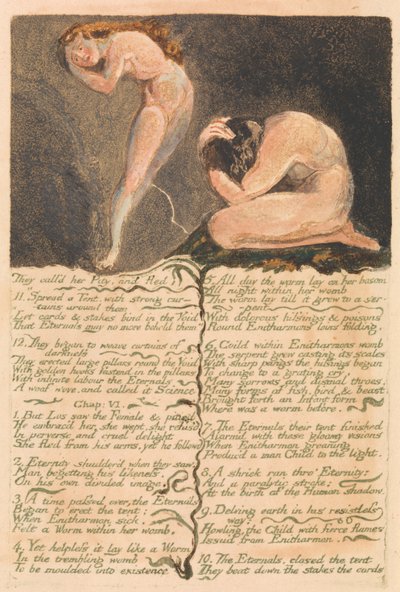 They call'd her Pity, and fled
11. Spread a Tent, with strong cur-
tains around them
Let cords & stakes bind in the Void
That Eternals may no more behold them
12. They began to weave curtains of
darkness
They erected large pillars round the Void
With golden hooks fastend in the pillars
With infinite labour the Eternals
A woof wove, and called it Science
Chap: VI.
1. But Los saw the Female & pitied
He embrac'd her, she wept, she refus'd
In perverse and cruel delight
She fled from his arms, yet he follow'd
2. Eternity shudder'd when they saw,
Man begetting his likeness,
On his own divided image.
3. A time passed over, the Eternals
Began to erect the tent;
When Enitharmon sick,
Felt a Worm within her womb.
4. Yet helpless it lay like a Worm
In the trembling womb
To be moulded into existence
5. All day the worm lay on her bosom
All night within her womb
The worm lay till it grew to a ser-
With dolorous hissings & poisons
Round Enitharmons loins folding,
6. Coild within Enitharmons womb
The serpent grew casting its scales
With sharp pangs the hissings began
To change to a grating cry,
Many sorrows and dismal throes,
Many forms of fish, bird & beast,
Brought forth an Infant form
Where was a worm before.
7. The Eternals their tent finished
Alarm'd with these gloomy visions
When Enitharmon groaning
Produc'd a man Child to the light.
8. A shriek ran thro' Eternity:
And a paralytic stroke;
At the birth of the Human shadow.
9. Delving earth in his resistless
way;
Howling, the Child with fierce flames
Issu'd from Enitharmon.
10. The Eternals, closed the tent
They beat down the stakes the cords